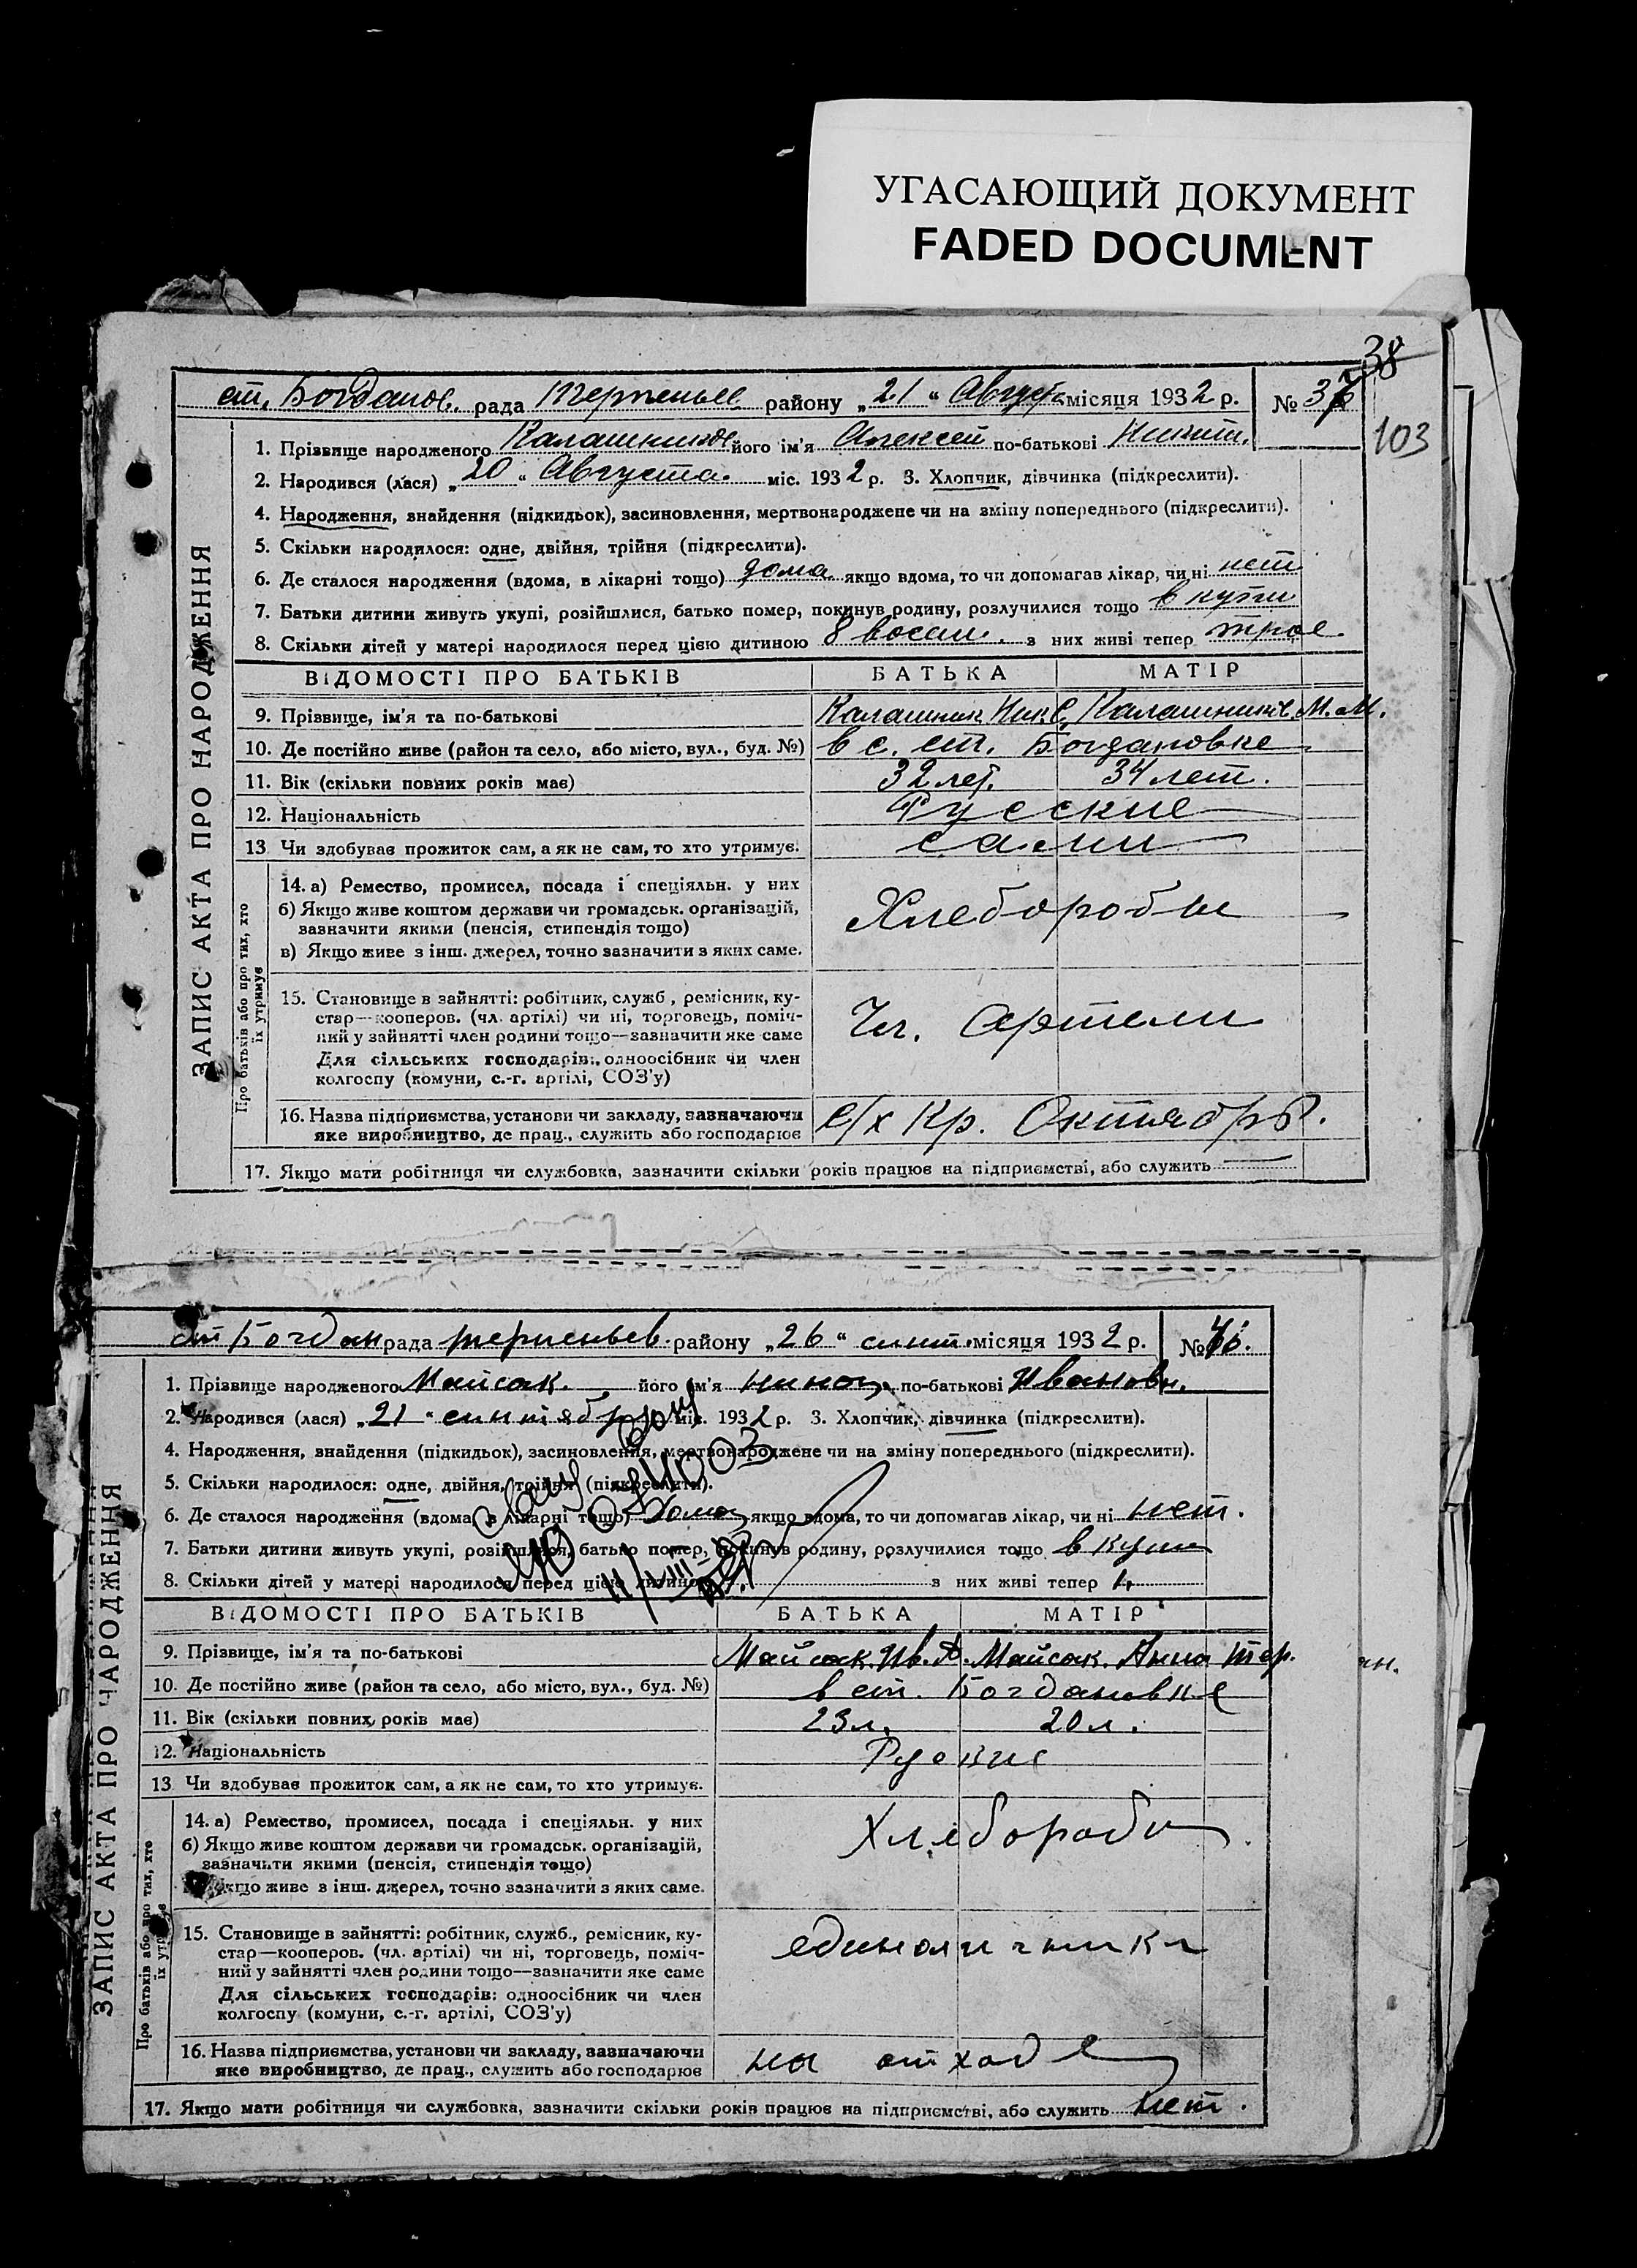 УГАСАЮЩИЙ ДОКУМЕНТ
FADED DOCUMENT
38
ст. Богданов. рада Терпеньев району „21“ Август місяця 1932 р. № 37
103
ЗАПИС АКТА ПРО НАРОДЖЕННЯ
1. Прізвище народженого Калашников його ім'я Алексей по-батькові Никит.
2. Народився (лася) „20“ Августа. міс. 1932 р. 3. Хлопчик, дівчинка (підкреслити).
4. Народження, знайдення (підкидьок), засиновлення, мертвонароджене чи на зміну попереднього (підкреслити).
5. Скільки народилося: одне, двійня, трійня (підкреслити).
6. Де сталося народження (вдома, в лікарні тощо) дома якщо вдома, то чи допомагав лікар, чи ні нет
7. Батьки дитини живуть укупі, розійшлися, батько помер, покинув родину, розлучилися тощо в купи
8. Скільки дітей у матері народилося перед цією дитиною 8 восем. з них живі тепер трое.
ВІДОМОСТІ ПРО БАТЬКІВ БАТЬКА МАТІР
9. Прізвище, ім'я та по-батькові Калашник. Ник. С. Калашников. М. М.
10. Де постійно живе (район та село, або місто, вул., буд. №) в с. ст. Богдановке
11. Вік (скільки повних років має) 32 лет. 34 лет.
12. Національність Русские
13 Чи здобував прожиток сам, а як не сам, то хто утримує. сами
Про батьків або про тих, хто їх утримує
14. а) Ремество, промисел, посада і спеціяльн. у них
б) Якщо живе коштом держави чи громадськ. організацій,
зазначити якими (пенсія, стипендія тощо)
Хлеборобы
в) Якщо живе з інш. джерел, точно зазначити з яких саме.
15. Становище в зайнятті: робітник, служб., ремісник, ку-
стар—кооперов. (чл. артілі) чи ні, торговець, поміч-
ний у зайнятті член родини тощо—зазначити яке саме
Чл. Артели
Для сільських господарів: одноосібник чи член
колгоспу (комуни, с.-г. артілі, СОЗ'у)
16. Назва підприємства, установи чи закладу, зазначаючи
яке виробництво, де прац., служить або господарює
с/х Кр. Октябрь.
17. Якщо мати робітниця чи службовка, зазначити скільки років працює на підприємстві, або служить —
ст Богдан рада терпеньев. району „26“ синт. місяця 1932 р. №
ЗАПИС АКТА ПРО НАРОДЖЕННЯ
1. Прізвище народженого Майсак. його ім'я нина по-батькові Ивановн.
2. Народився (лася) „21“ синтября міс. 1932 р. 3. Хлопчик, дівчинка (підкреслити).
4. Народження, знайдення (підкидьок), засиновлення, мертвонароджене чи на зміну попереднього (підкреслити).
5. Скільки народилося: одне, двійня, трійня (підкреслити).
6. Де сталося народження (вдома, в лікарні тощо) Дома якщо вдома, то чи допомагав лікар, чи ні нет.
7. Батьки дитини живуть укупі, розійшлися, батько помер, покинув родину, розлучилися тощо в купи
8. Скільки дітей у матері народилося перед цією дитиною з них живі тепер 1.
ВІДОМОСТІ ПРО БАТЬКІВ БАТЬКА МАТІР
9. Прізвище, ім'я та по-батькові Майсак. Ив. А. Майсак. Анна Тер.
10. Де постійно живе (район та село, або місто, вул., буд. №) в ст. Богдановке
11. Вік (скільки повних років має) 23 л. 20 л.
12. Національність Руские
13 Чи здобував прожиток сам, а як не сам, то хто утримує.
Про батьків або про тих, хто їх утримує
14. а) Ремество, промисел, посада і спеціяльн. у них
б) Якщо живе коштом держави чи громадськ. організацій,
зазначити якими (пенсія, стипендія тощо)
Хлебороби
якщо живе з інш. джерел, точно зазначити з яких саме.
15. Становище в зайнятті: робітник, служб., ремісник, ку-
стар—кооперов. (чл. артілі) чи ні, торговець, поміч-
ний у зайнятті член родини тощо—зазначити яке саме
единоличники
Для сільських господарів: одноосібник чи член
колгоспу (комуни, с.-г. артілі, СОЗ'у)
16. Назва підприємства, установи чи закладу, зазначаючи
яке виробництво, де прац., служить або господарює
на отходе
17. Якщо мати робітниця чи службовка, зазначити скільки років працює на підприємстві, або служить нет.